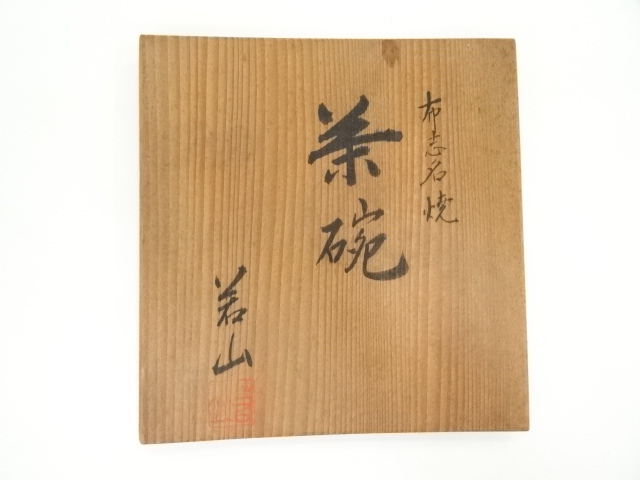 布志名焼
茶碗
若山